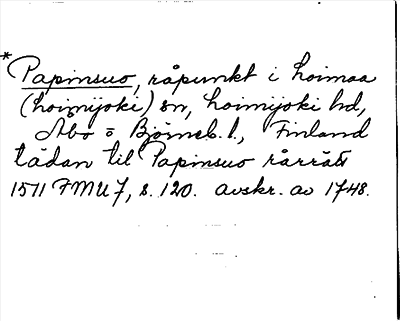 * Papinsuo, råpunkt i Loimaa
(Loimijoki) sn, Loimijoki hd,
Åbo o Björneb. l., Finland
tädan til Papinsuo rårräs
1511 FMU 7, s. 120. avskr. av 1748.